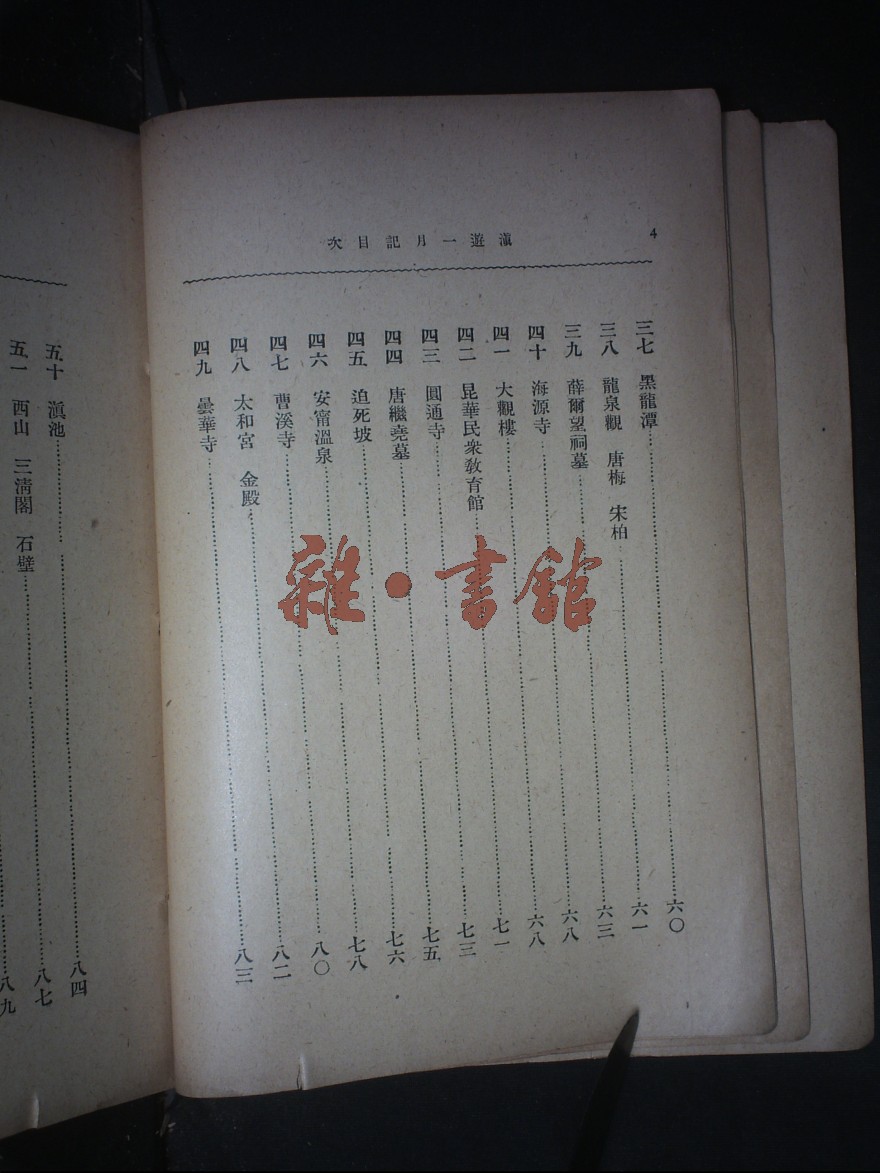 4
滇遊一月記目次
三七 黑龍潭……六〇
三八 龍泉觀 唐梅 宋柏……六一
三九 薛爾望祠墓……六三
四十 海源寺……六八
四一 大觀樓……六八
四二 昆華民衆敎育館……七一
四三 圓通寺……七三
四四 唐繼堯墓……七五
四五 迫死坡……七六
四六 安甯溫泉……七八
四七 曹溪寺……八〇
四八 太和宮 金殿……八二
四九 曇華寺……八三
五十 滇池……八四
五一 西山 三淸閣 石壁……八七
八九
雜·書館